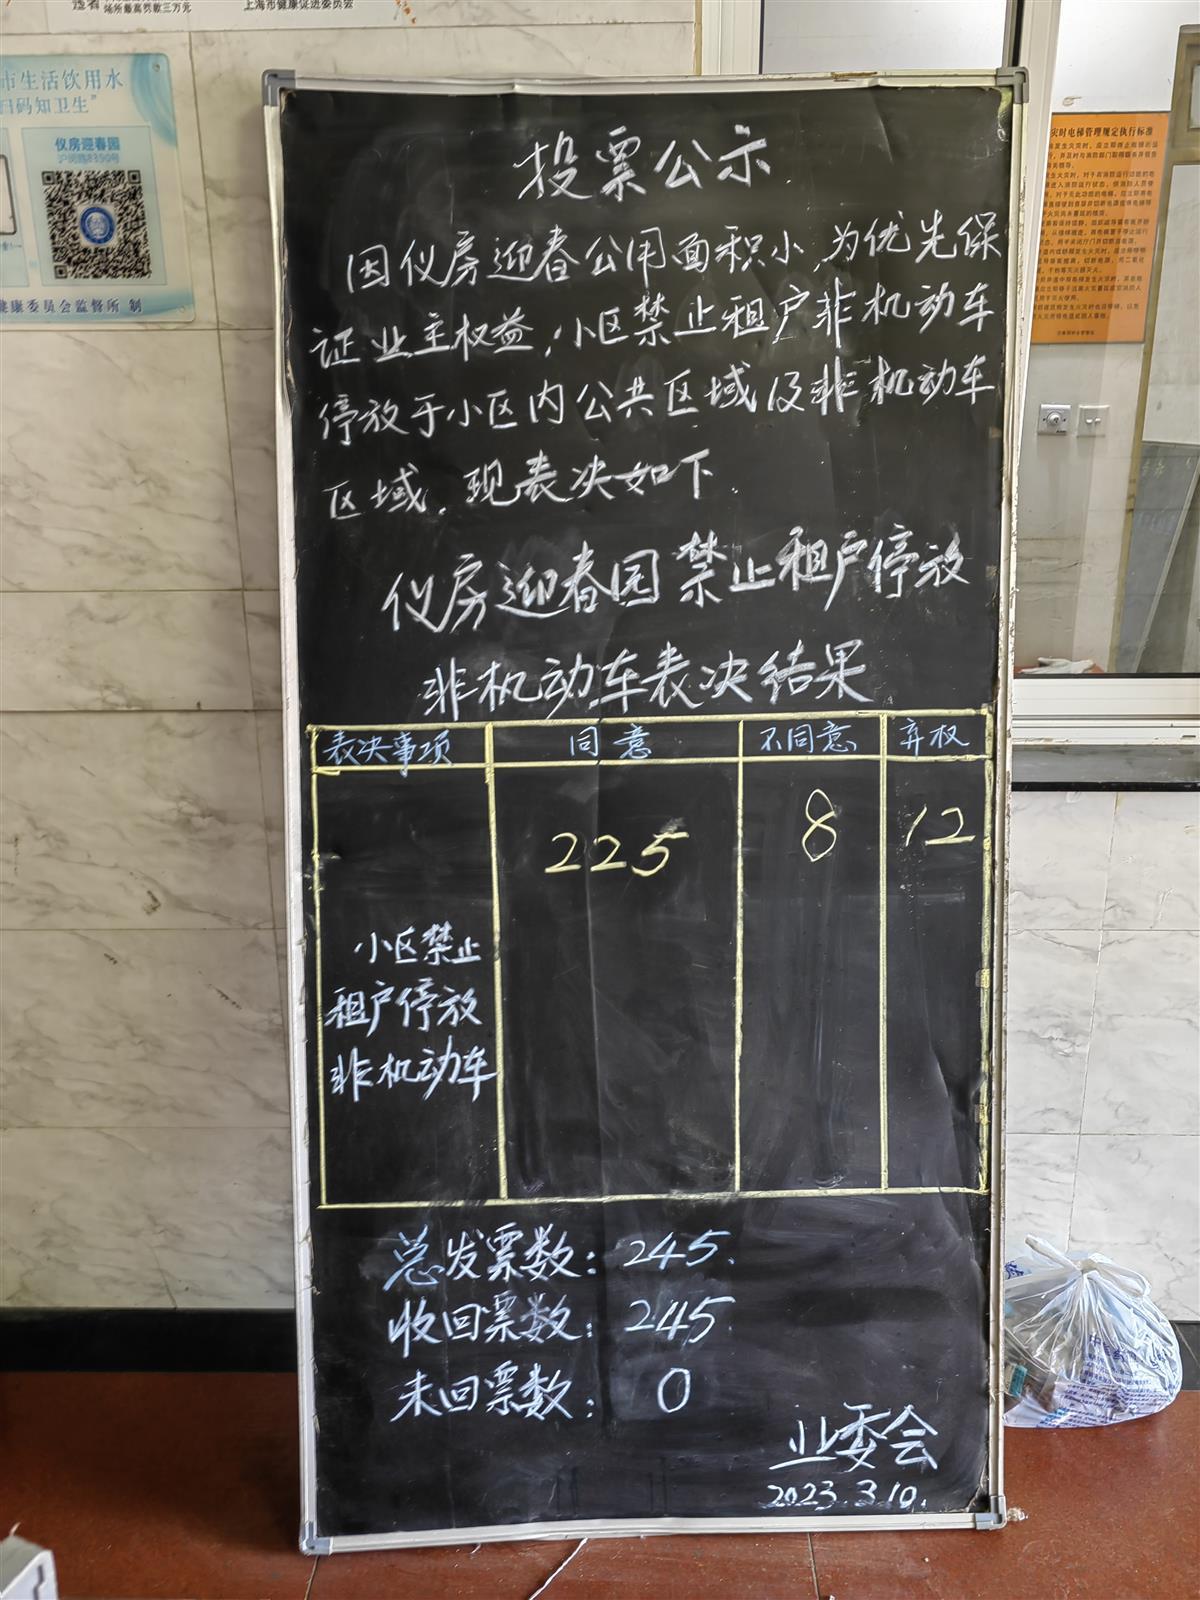 场所最高罚款三万元
上海市健康促进委员会
市生活饮用水
扫码知卫生”
仪房迎春园
沪闵路8390号
健康委员会监督所 制
火灾时电梯管理规定执行标准
投票公示
因仪房迎春公用面积小,为优先保
证业主权益,小区禁止租户非机动车
停放于小区内公共区域及非机动车
区域.现表决如下.
仪房迎春园禁止租户停放
非机动车表决结果
表决事项 同意 不同意 弃权
225 8 12
小区禁止
租户停放
非机动车
总发票数:245.
收回票数:245
未回票数:0
业委会
2023.3.10.